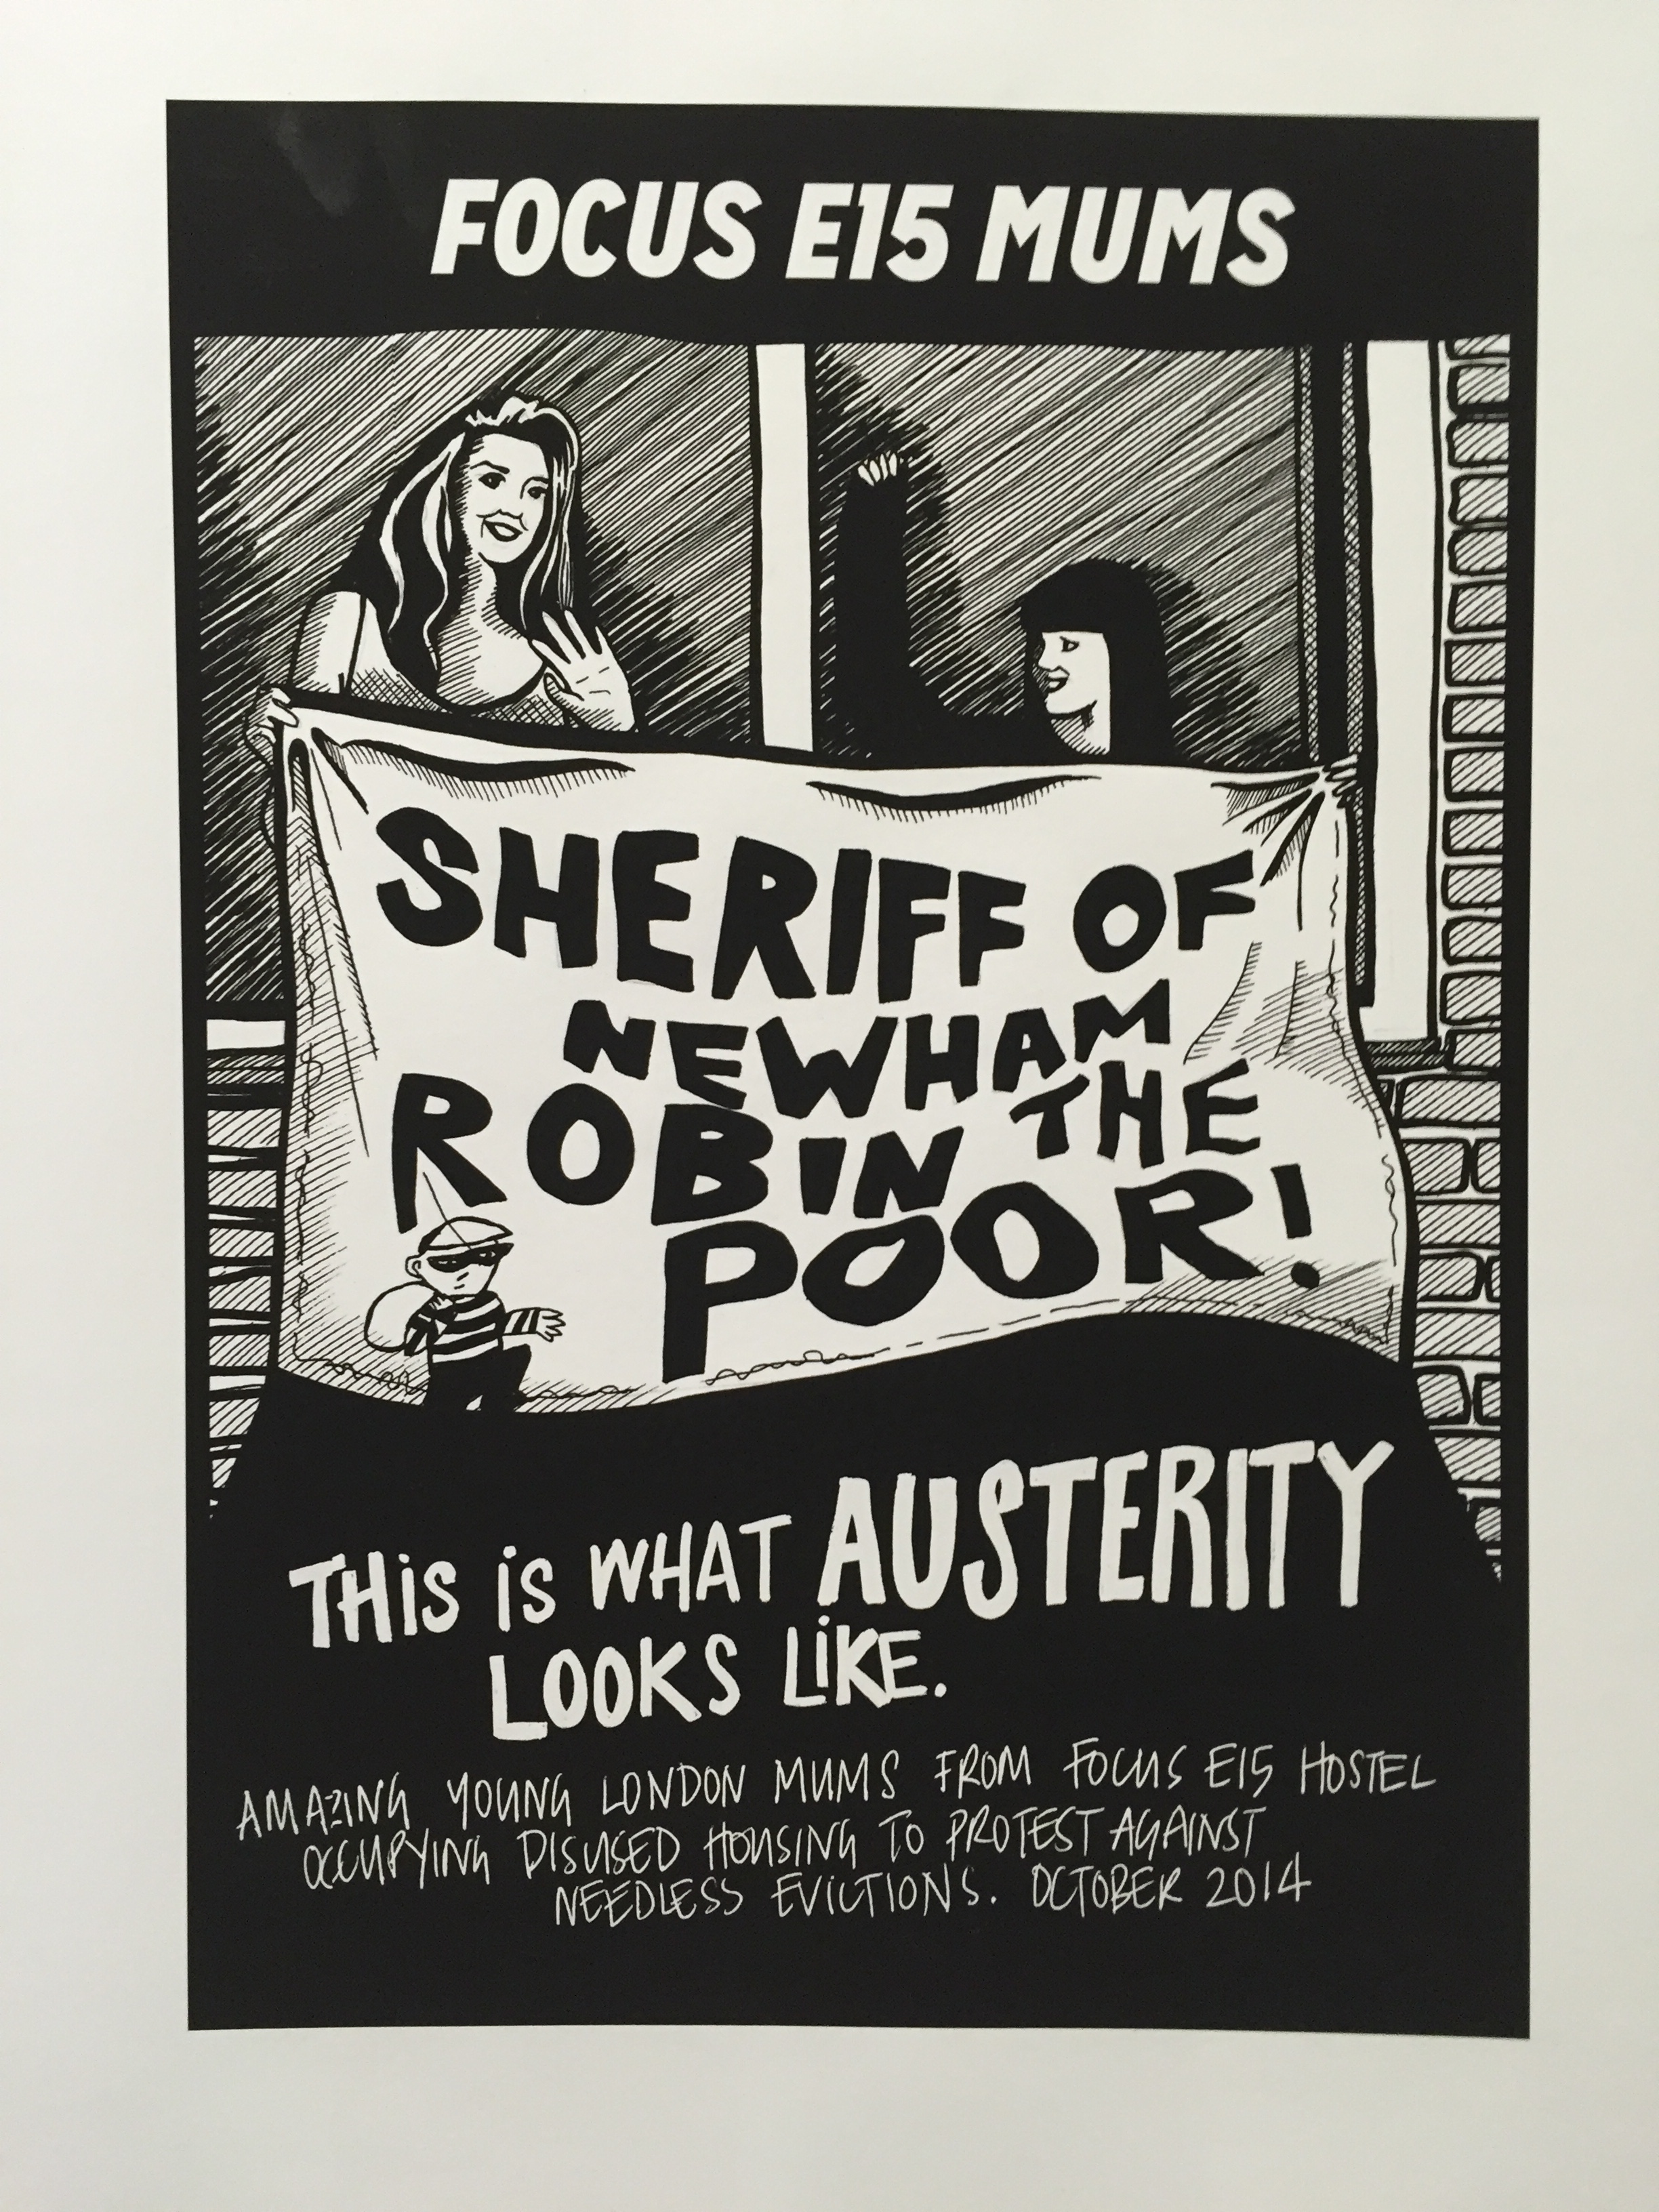 FOCUS E15 MUMS
SHERIFF OF
NEWHAM
ROBIN THE
POOR!
THIS IS WHAT AUSTERITY
LOOKS LIKE.
AMAZING YOUNG LONDON MUMS FROM FOCUS E15 HOSTEL
OCCUPYING DISUSED HOUSING TO PROTEST AGAINST
NEEDLESS EVICTIONS. OCTOBER 2014